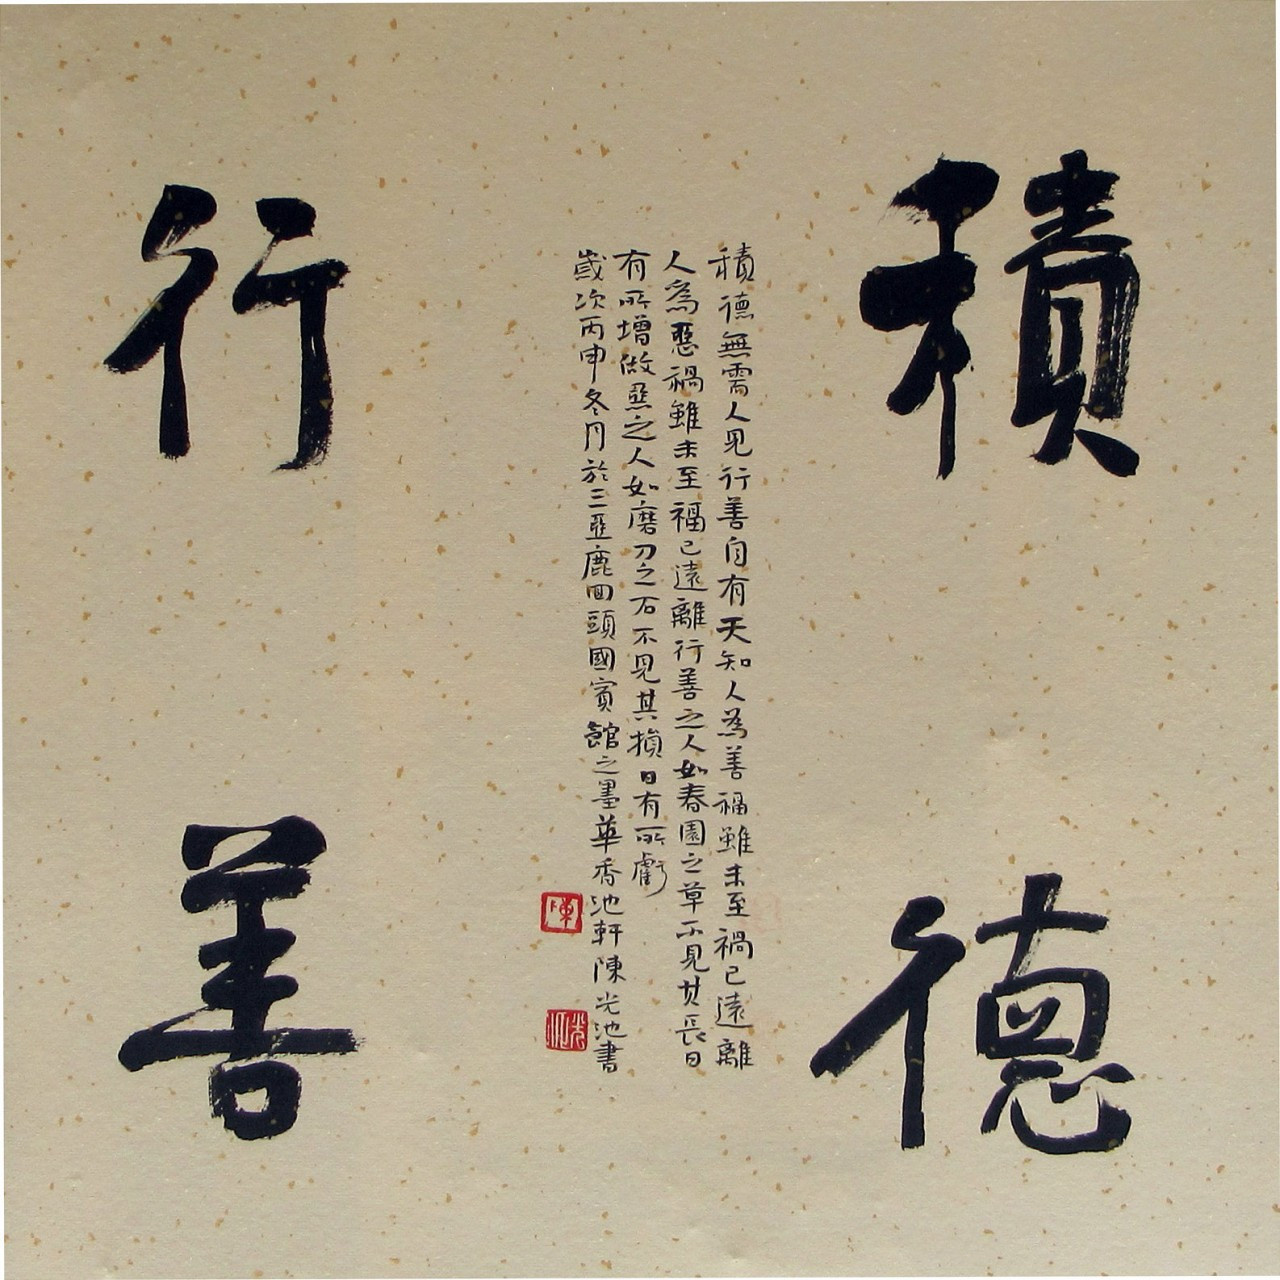 積德
積德無需人見行善自有天知人為善福雖未至禍已遠離
人為惡禍雖未至福已遠離行善之人如春園之草不見其長日
有所增做惡之人如磨刀之石不見其損日有所虧
歲次丙申冬月於三亞鹿回頭國賓館之墨華香池軒陳光池書
陳
光池
行善